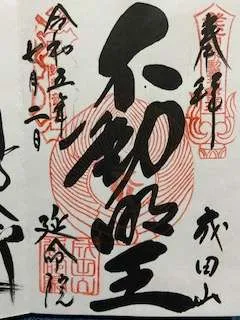 奉拝
成田山
不動明王
令和五年
七月二日
延命院